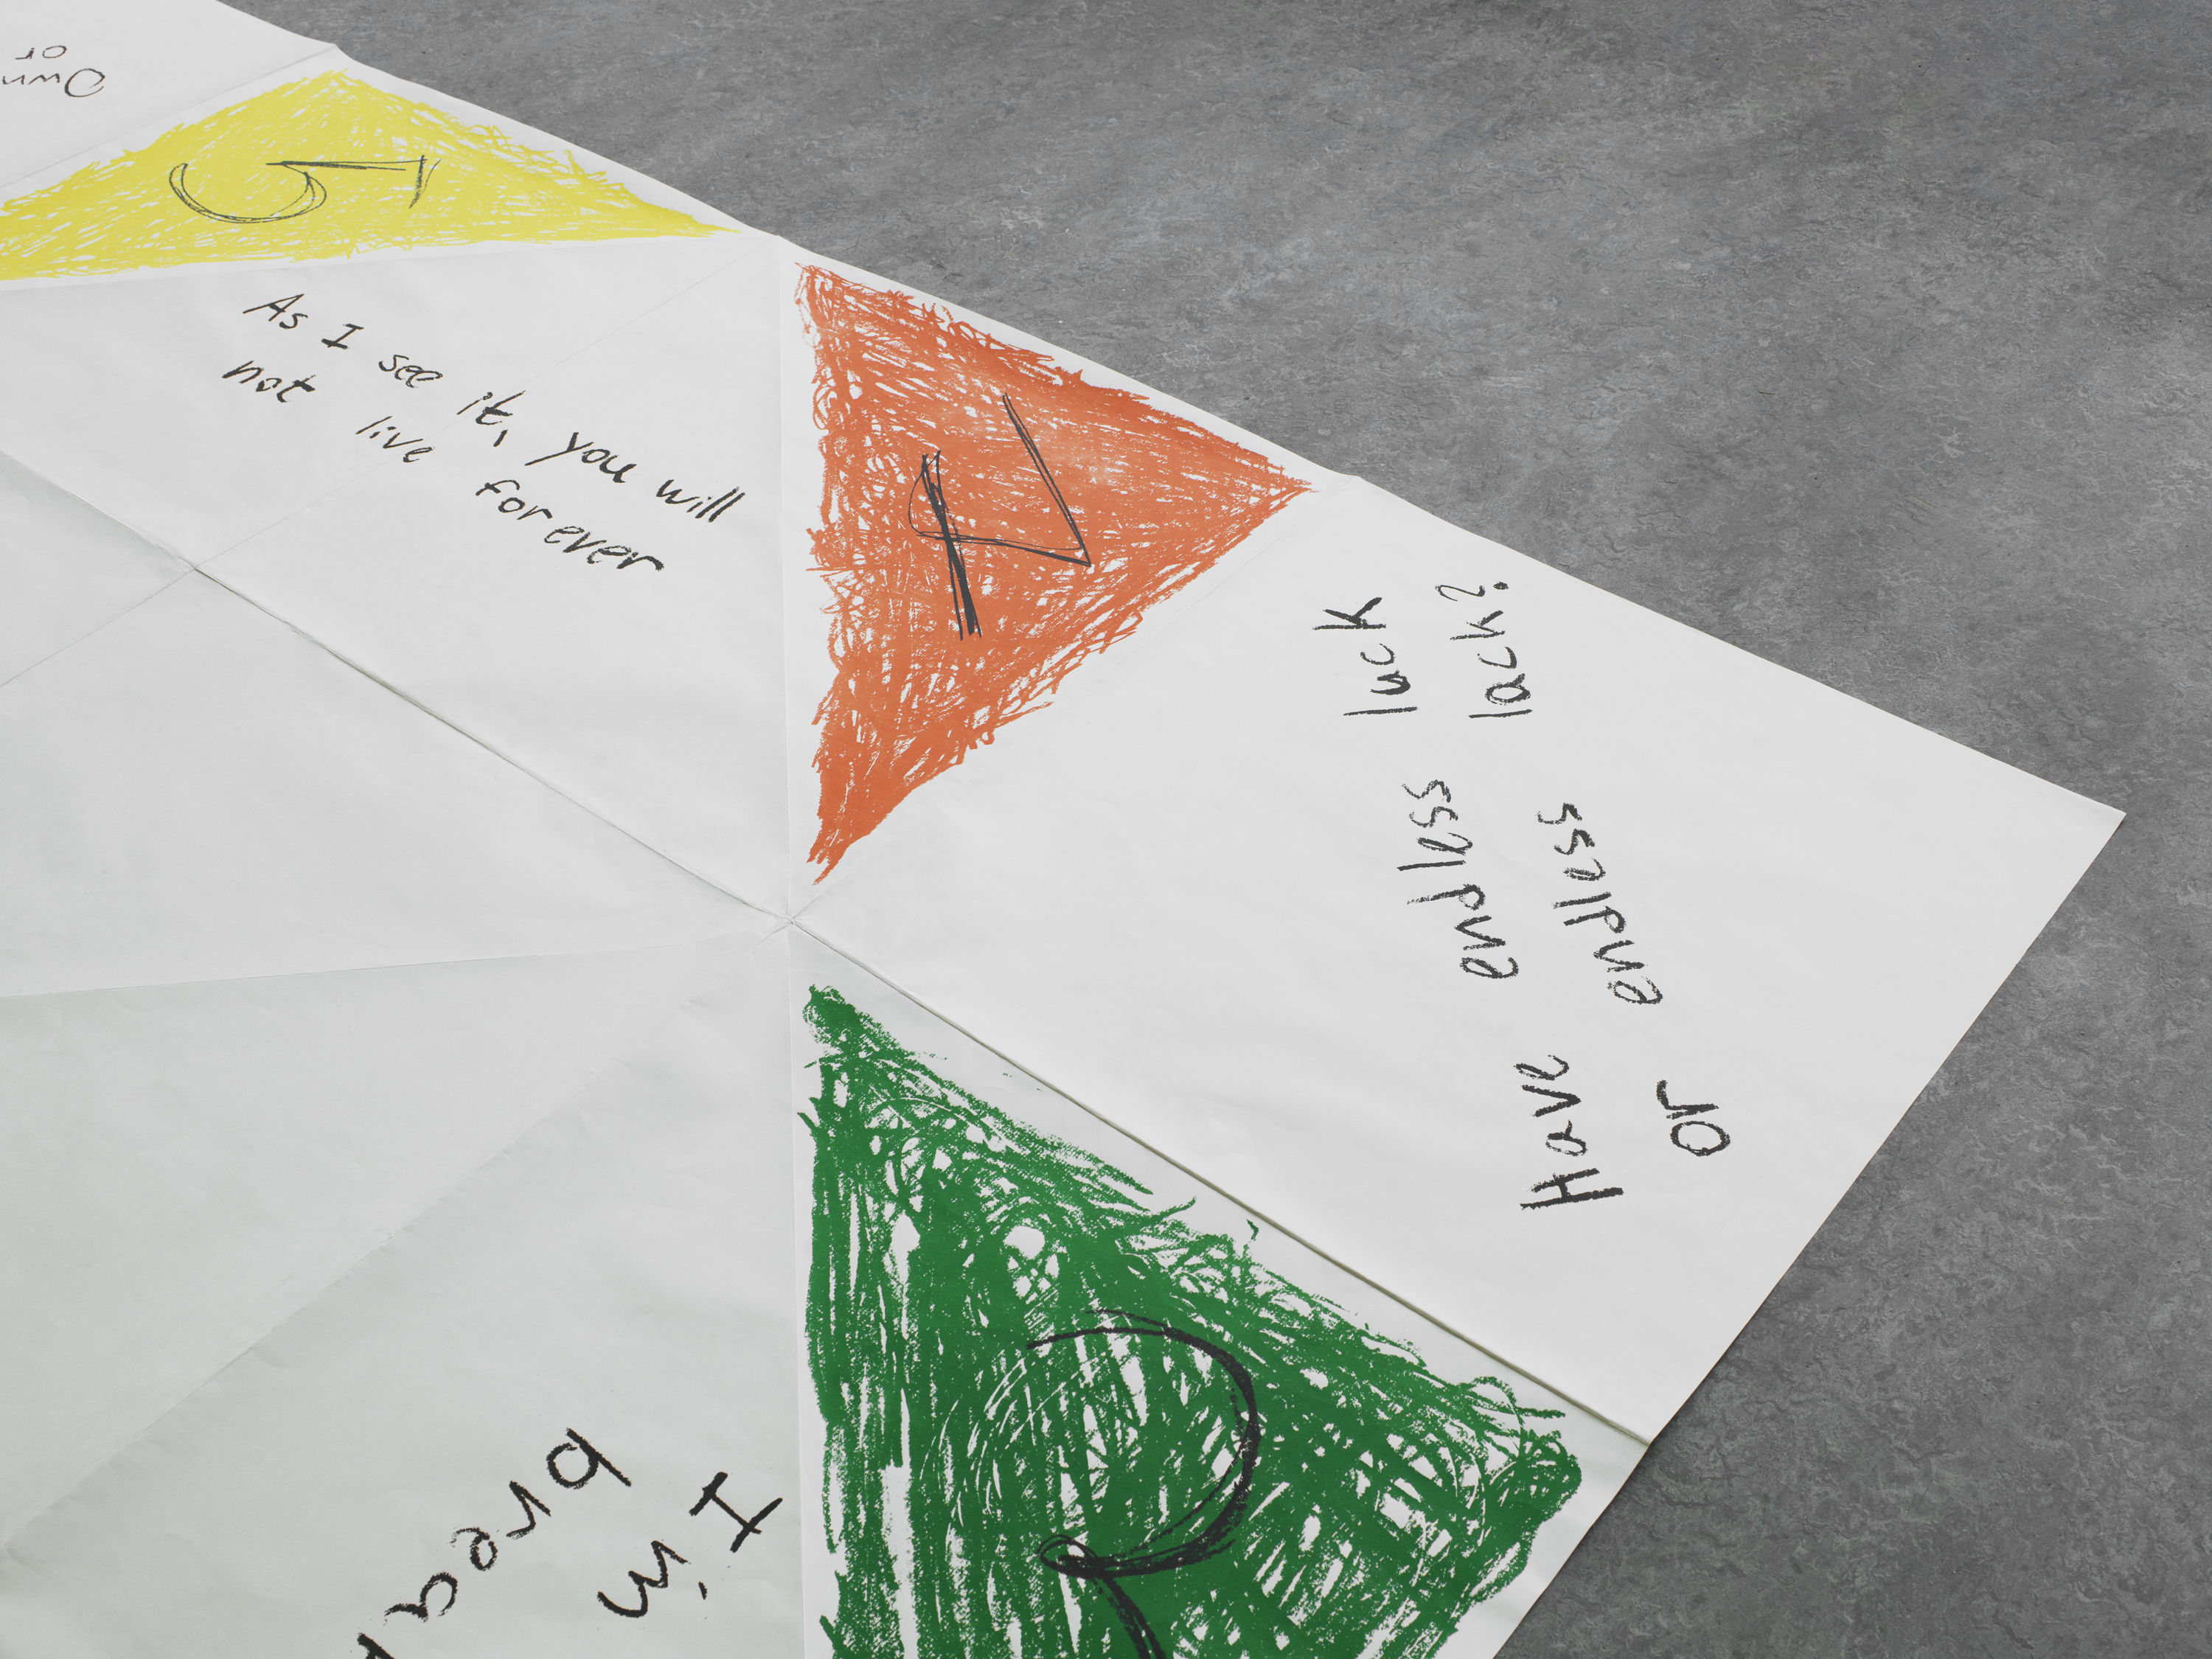 Own
or
5
As I see it, you will
not live forever
4
Have endless luck
or endless lack?
2
I
in